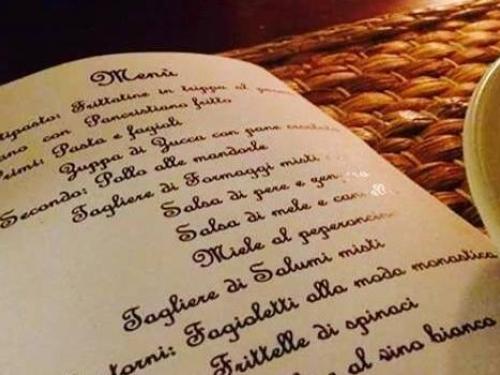 Menù
tipasto: Frittatine in trippa al
ano con Pancristiano fritto
Primi: Pasta e fagioli
Zuppa di Zucca con pane
Secondo: Pollo alle mandorle
Tagliere di Formaggi misti
Salsa di pere e
Salsa di mele e
Miele al peperoncino
Tagliere di Salumi misti
torni: Fagioletti alla moda monastica
Frittelle di spinaci
al vino bianco